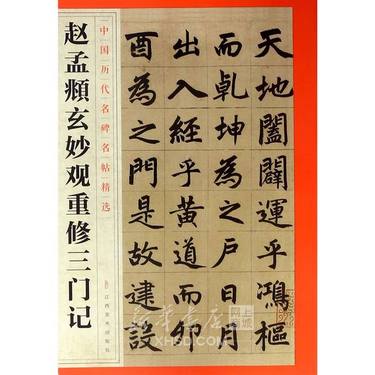 赵孟頫玄妙观重修三门记
中国历代名碑名帖精选
江西美术出版社
天地闔闢運乎鴻樞
而乾坤為之戶日月
出入經乎黃道而卯
酉為之門是故建設
新华书店
网上商城
XHSD.COM